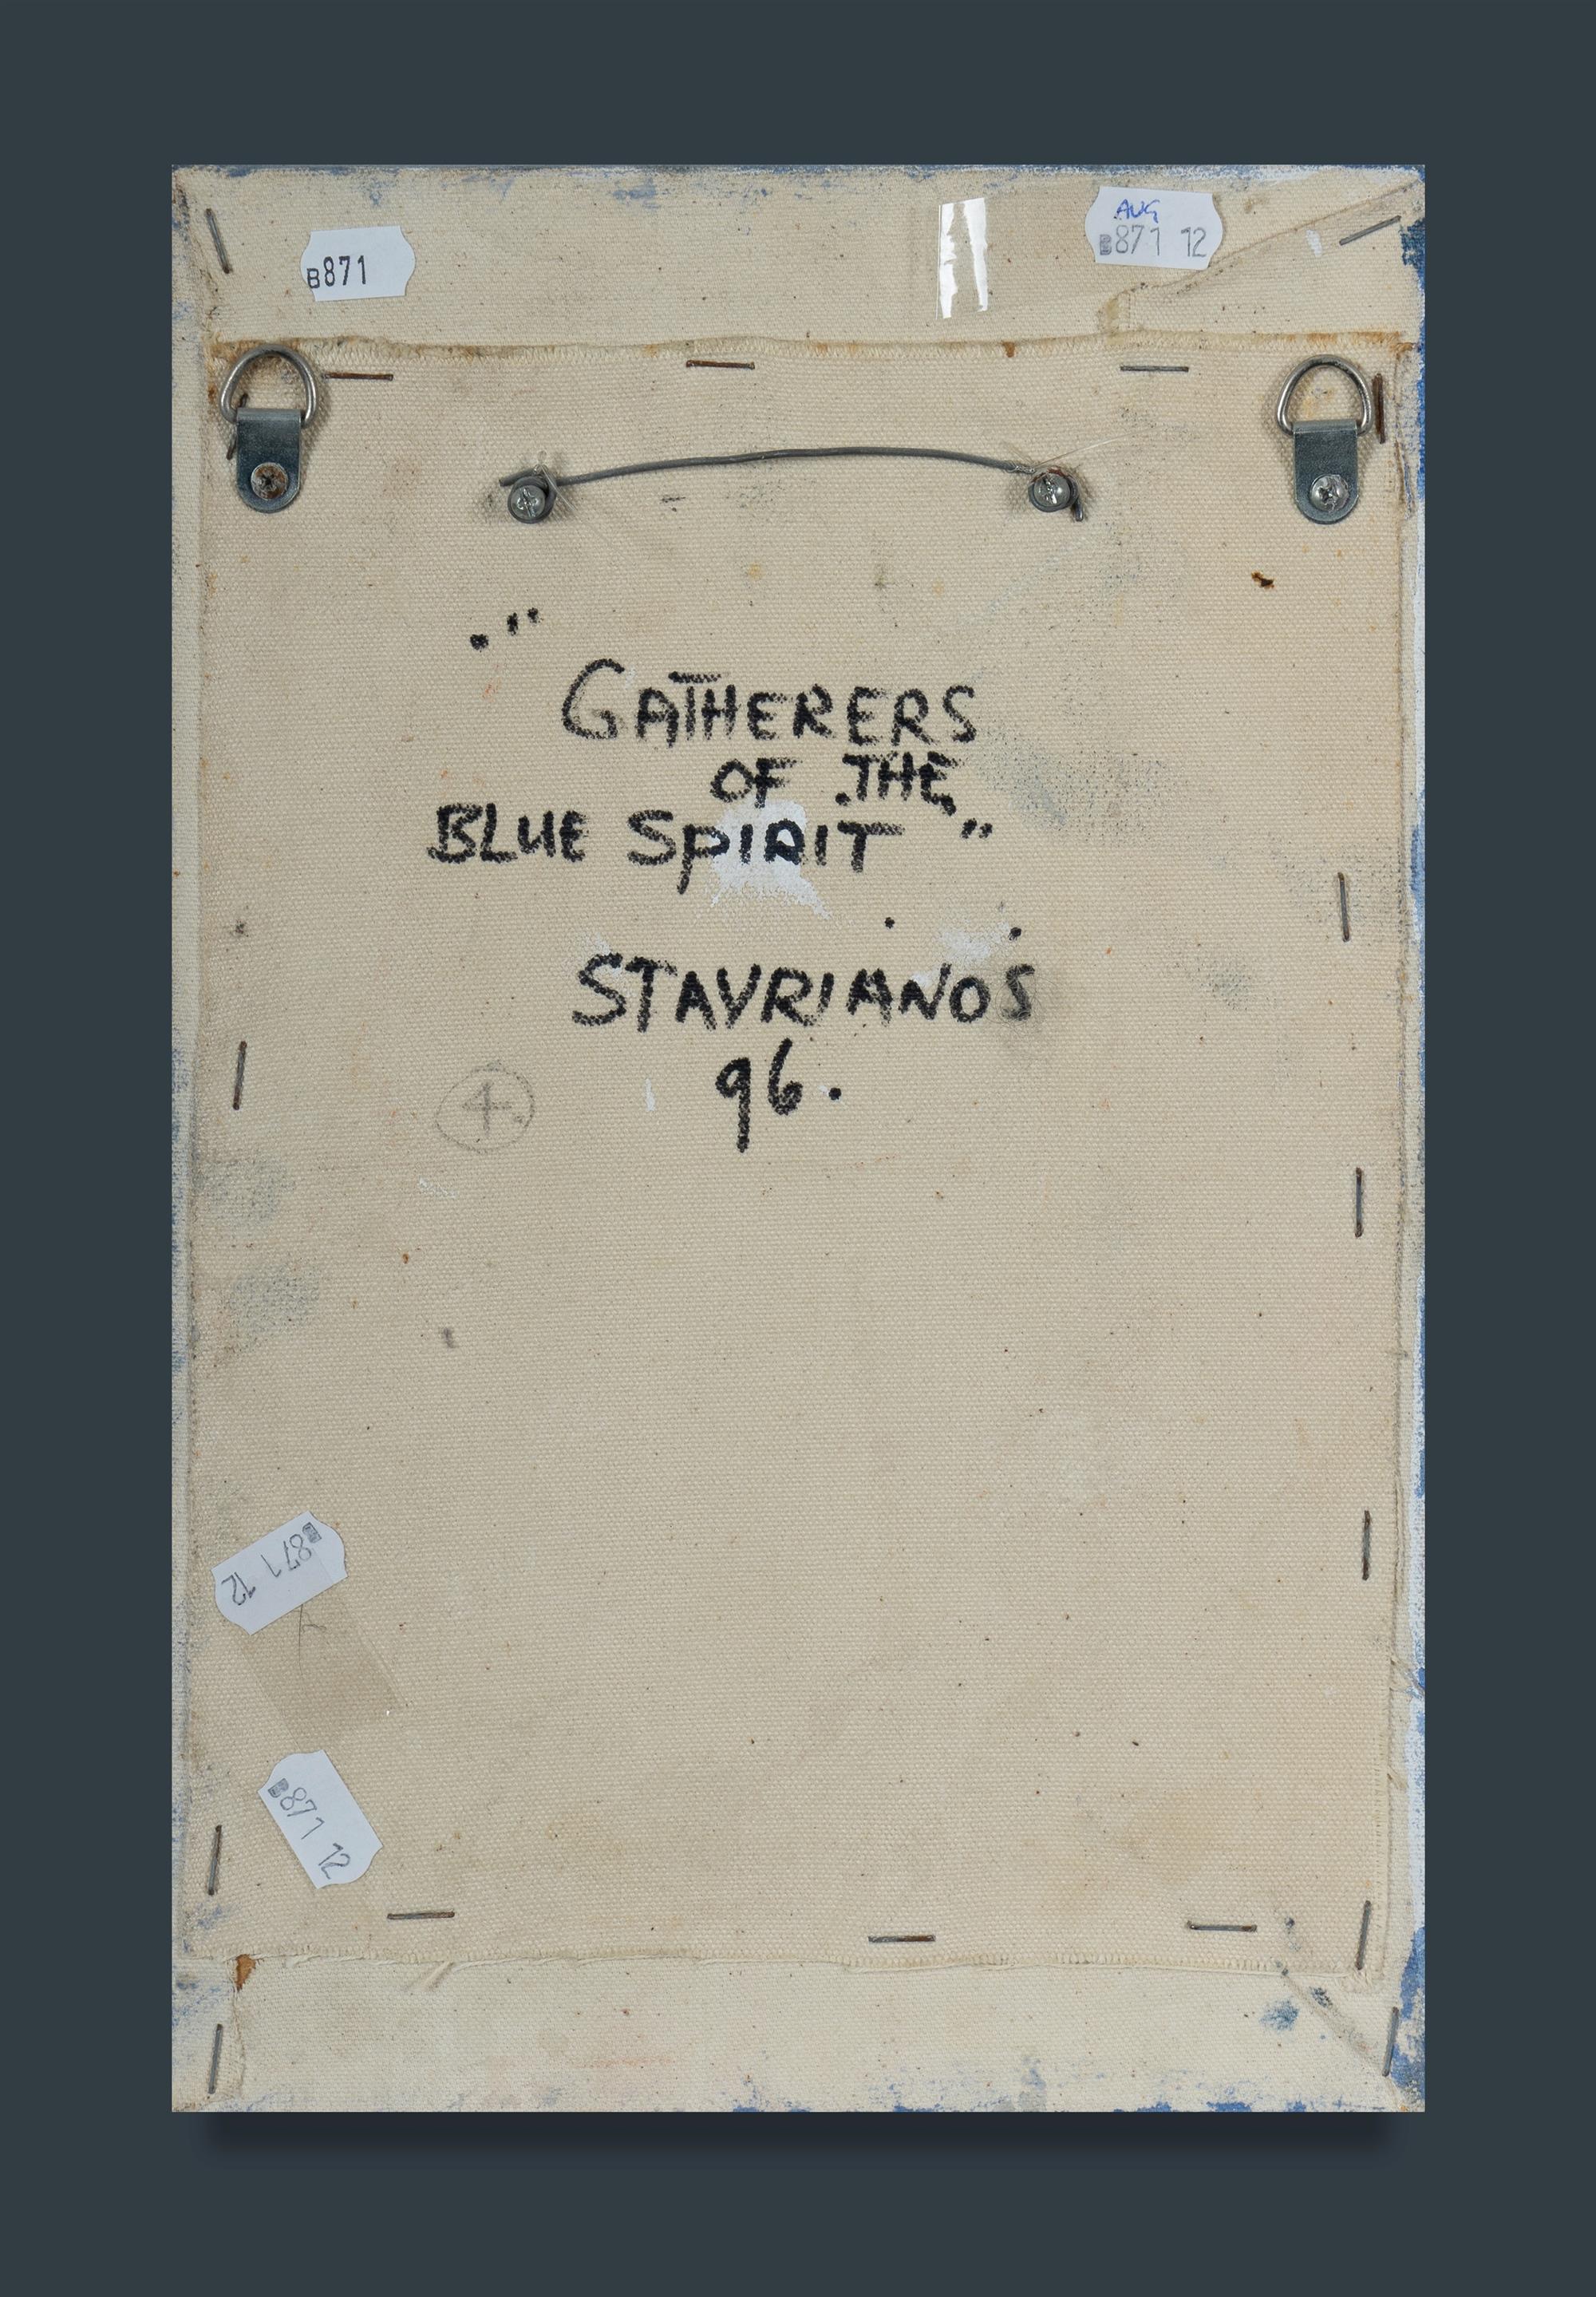 B871
AUG
B871 12
"GATHERERS
OF THE
BLUE SPIRIT"
STAVRIANOS
96.
4.
B871 12
B871 12